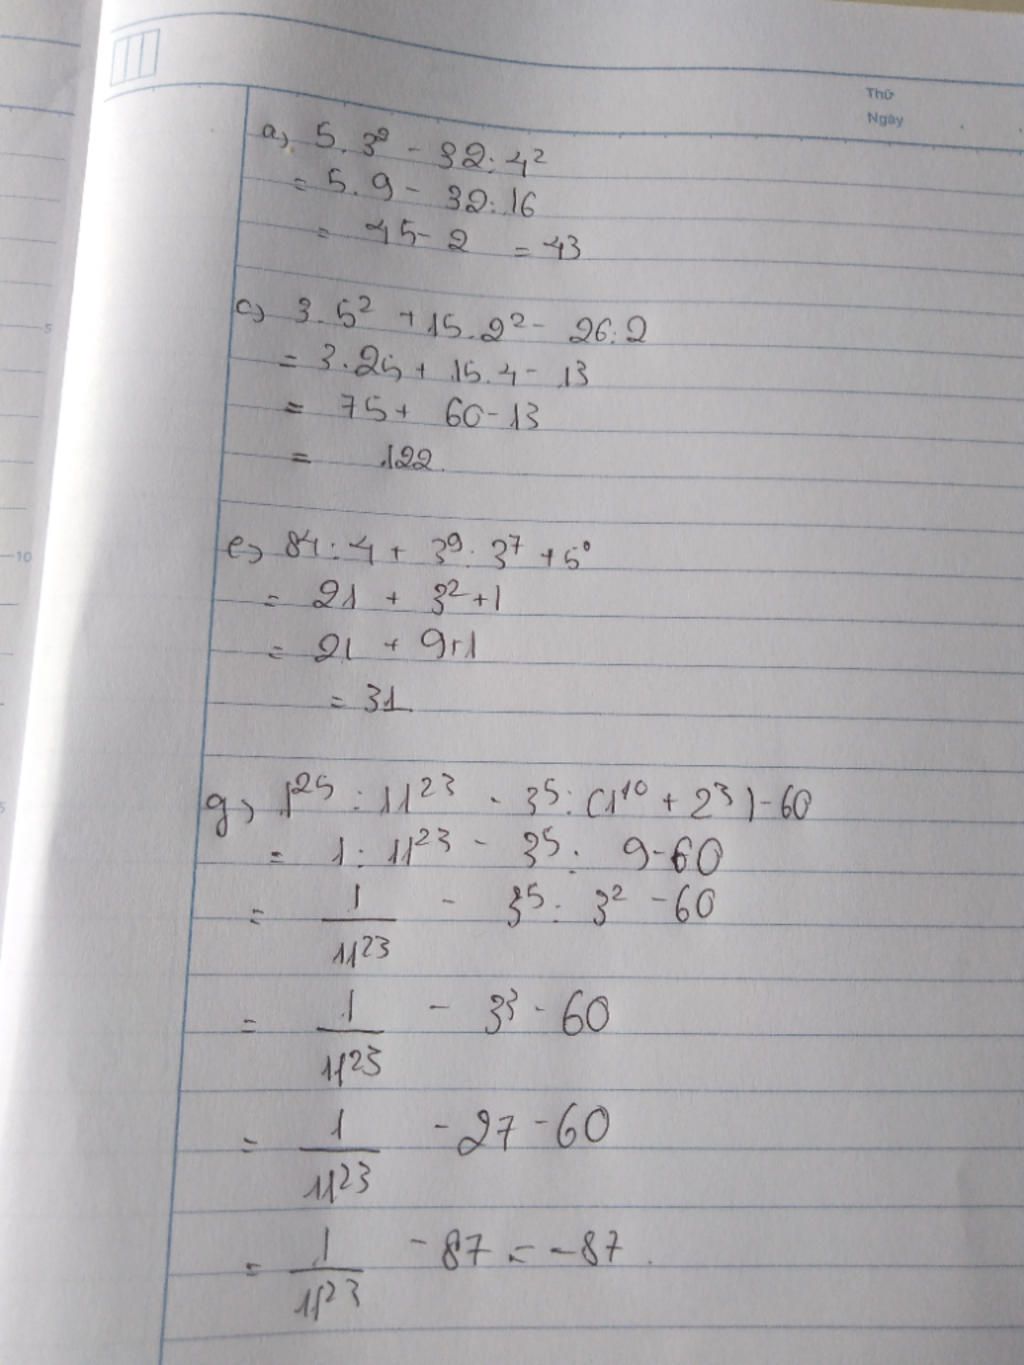 Thứ
Ngày
a) 5.3² - 32:4²
= 5.9 - 32:16
= 45 - 2 = 43
c) 3.5² + 15.2² - 26:2
= 3.25 + 15.4 - 13
= 75 + 60 - 13
= 122.
e) 84:4 + 3⁹:3⁷ + 5⁰
= 21 + 3² + 1
= 21 + 9 + 1
= 31
g) 1²⁵ : 11²³ - 3⁵ : (1¹⁰ + 2³) - 60
= 1 : 11²³ - 3⁵ : 9 - 60
= 1/11²³ - 3⁵ : 3² - 60
= 1/11²³ - 3³ - 60
= 1/11²³ - 27 - 60
= 1/11²³ - 87 = -87.
5
10